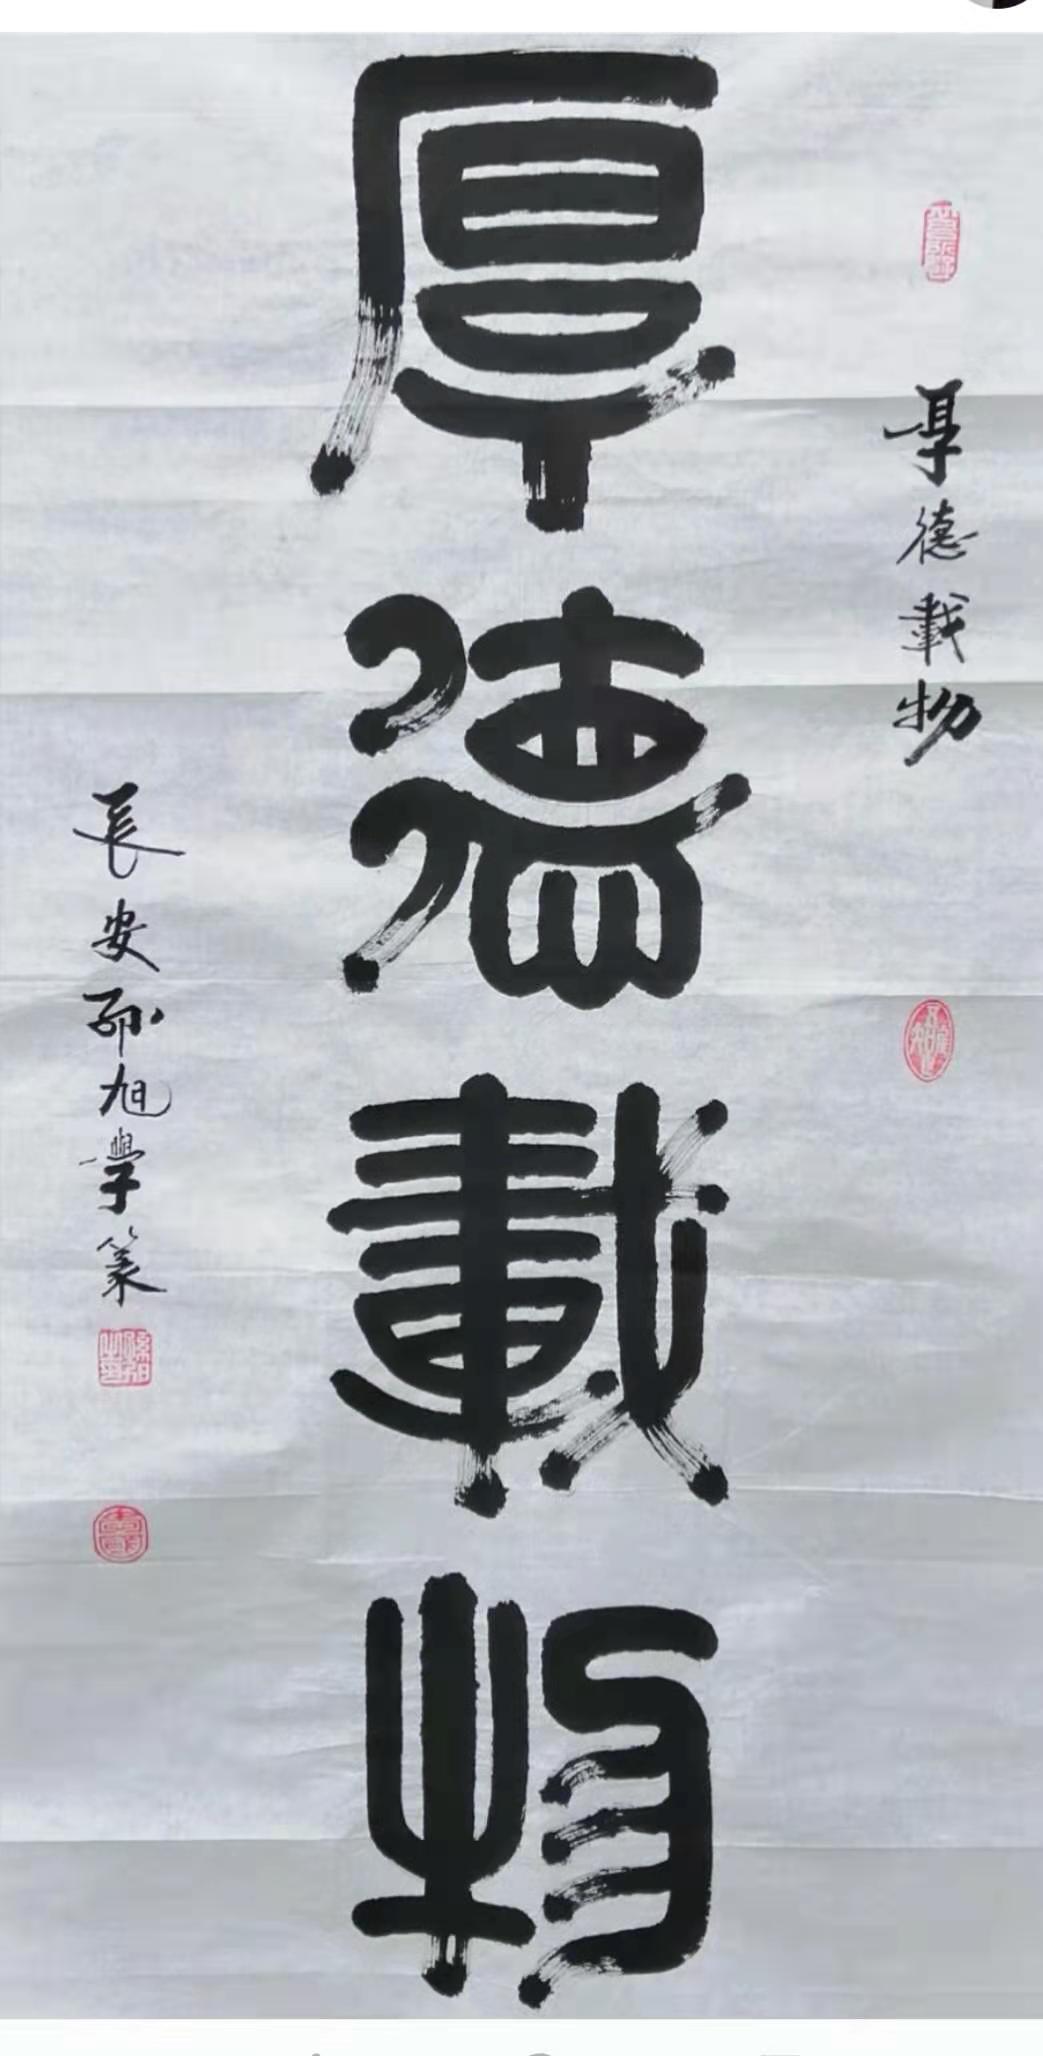 厚德載物
厚德載物
長安孫旭學篆